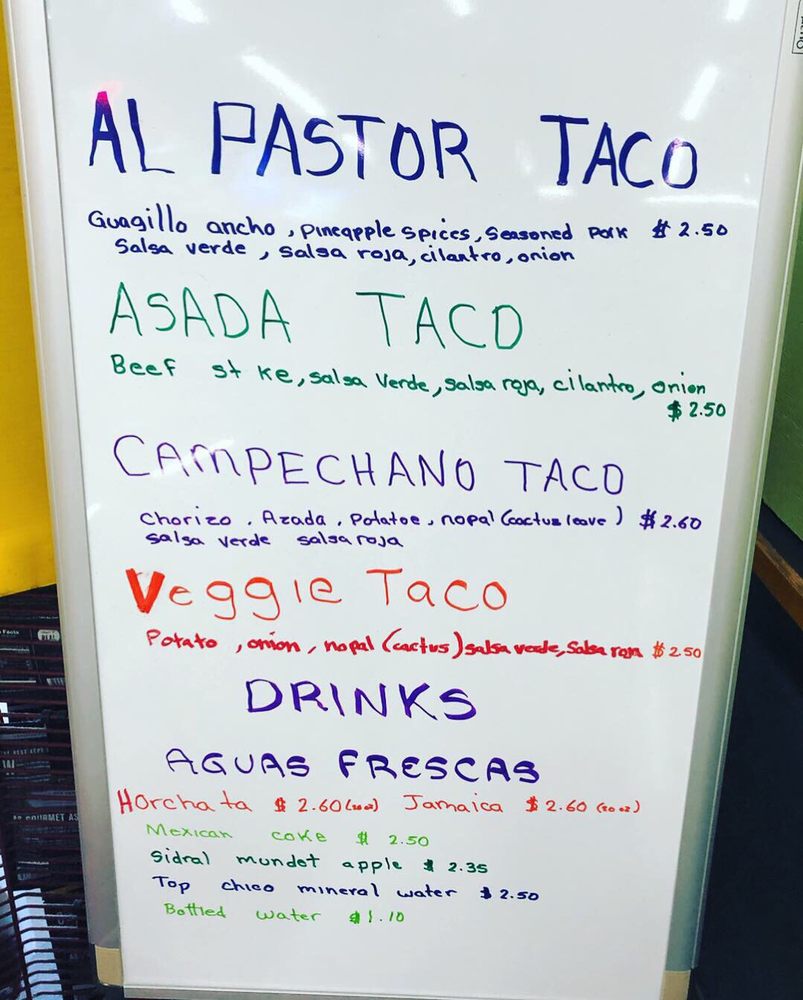 AL PASTOR TACO
Guagillo ancho, pineapple spices, seasoned pork $2.50
Salsa verde, salsa roja, cilantro, onion
ASADA TACO
Beef st ke, salsa verde, salsa roja, cilantro, onion
$2.50
CAMPECHANO TACO
chorizo, Azada, potatoe, nopal (cactus leave) $2.60
salsa verde salsa roja
Veggie Taco
Potato, onion, nopal (cactus) salsa verde, salsa $2.50
DRINKS
AGUAS FRESCAS
Horchata $2.60 (20oz) Jamaica $2.60 (20oz)
Mexican coke $2.50
Sidral mundet apple $2.35
Top chico mineral water $2.50
Bottled water $1.10